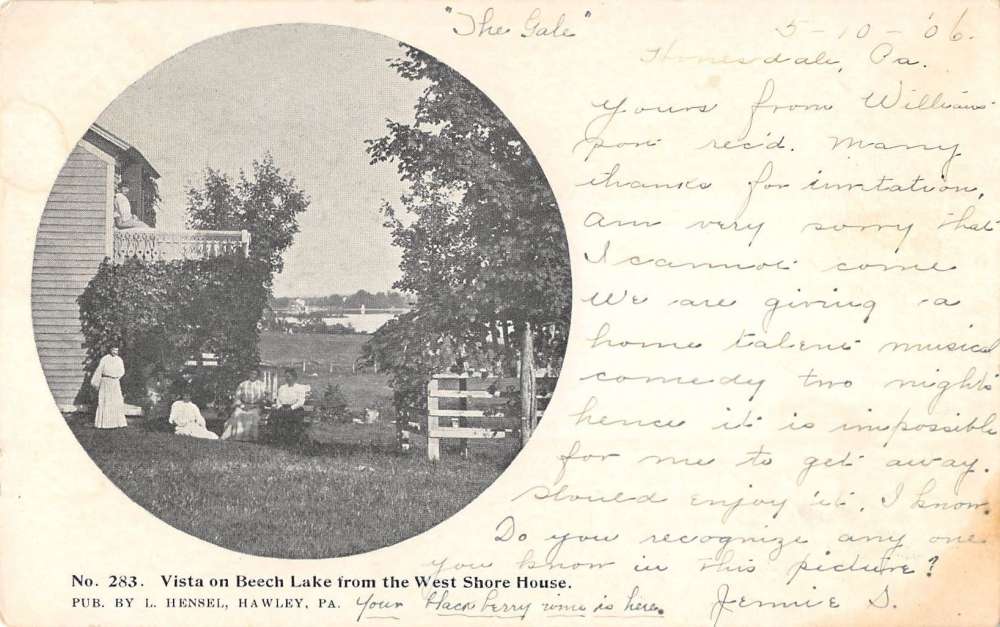 "The Gale"
5-10-'06.
Honesdale, Pa.
Yours from Williams
port rec'd. Many
thanks for invitation,
am very sorry that
I cannot come
We are giving a
home talent musical
comedy two nights
hence it is impossible
for me to get away.
Should enjoy it, I know.
Do you recognize any one
you know in this picture?
Jennie S.
No. 283. Vista on Beech Lake from the West Shore House.
PUB. BY L. HENSEL, HAWLEY, PA.
Your blackberry wine is here.